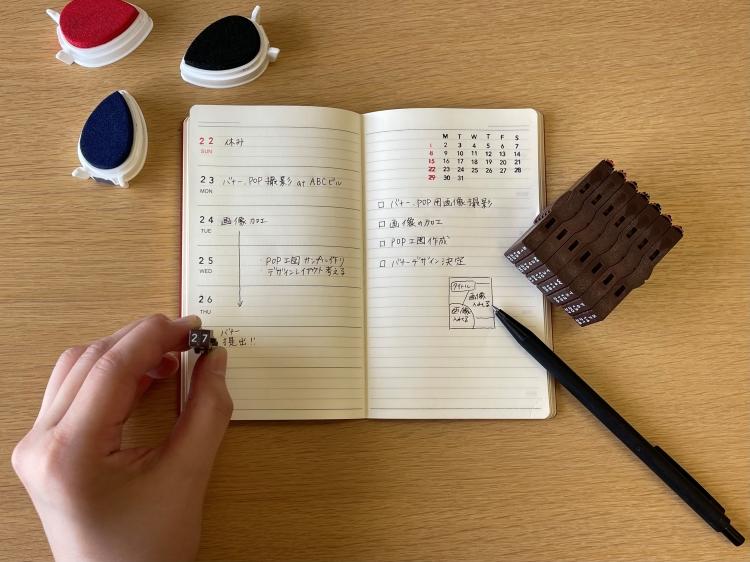 22 休み
SUN
23 バナー、POP 撮影 at ABCビル
MON
24 画像加工
TUE
25 ・POP工図 サンプル作り
WED ・デザインレイアウト考える
26
THU
27 バナー
提出!!
M T W T F S
1 2 3 4 5 6 7
8 9 10 11 12 13 14
15 16 17 18 19 20 21
22 23 24 25 26 27 28
29 30 31
□ バナー、POP用画像撮影
□ 画像の加工
□ POP工図作成
□ バナーデザイン決定
タイトル
画像
入れる
画像
入れる